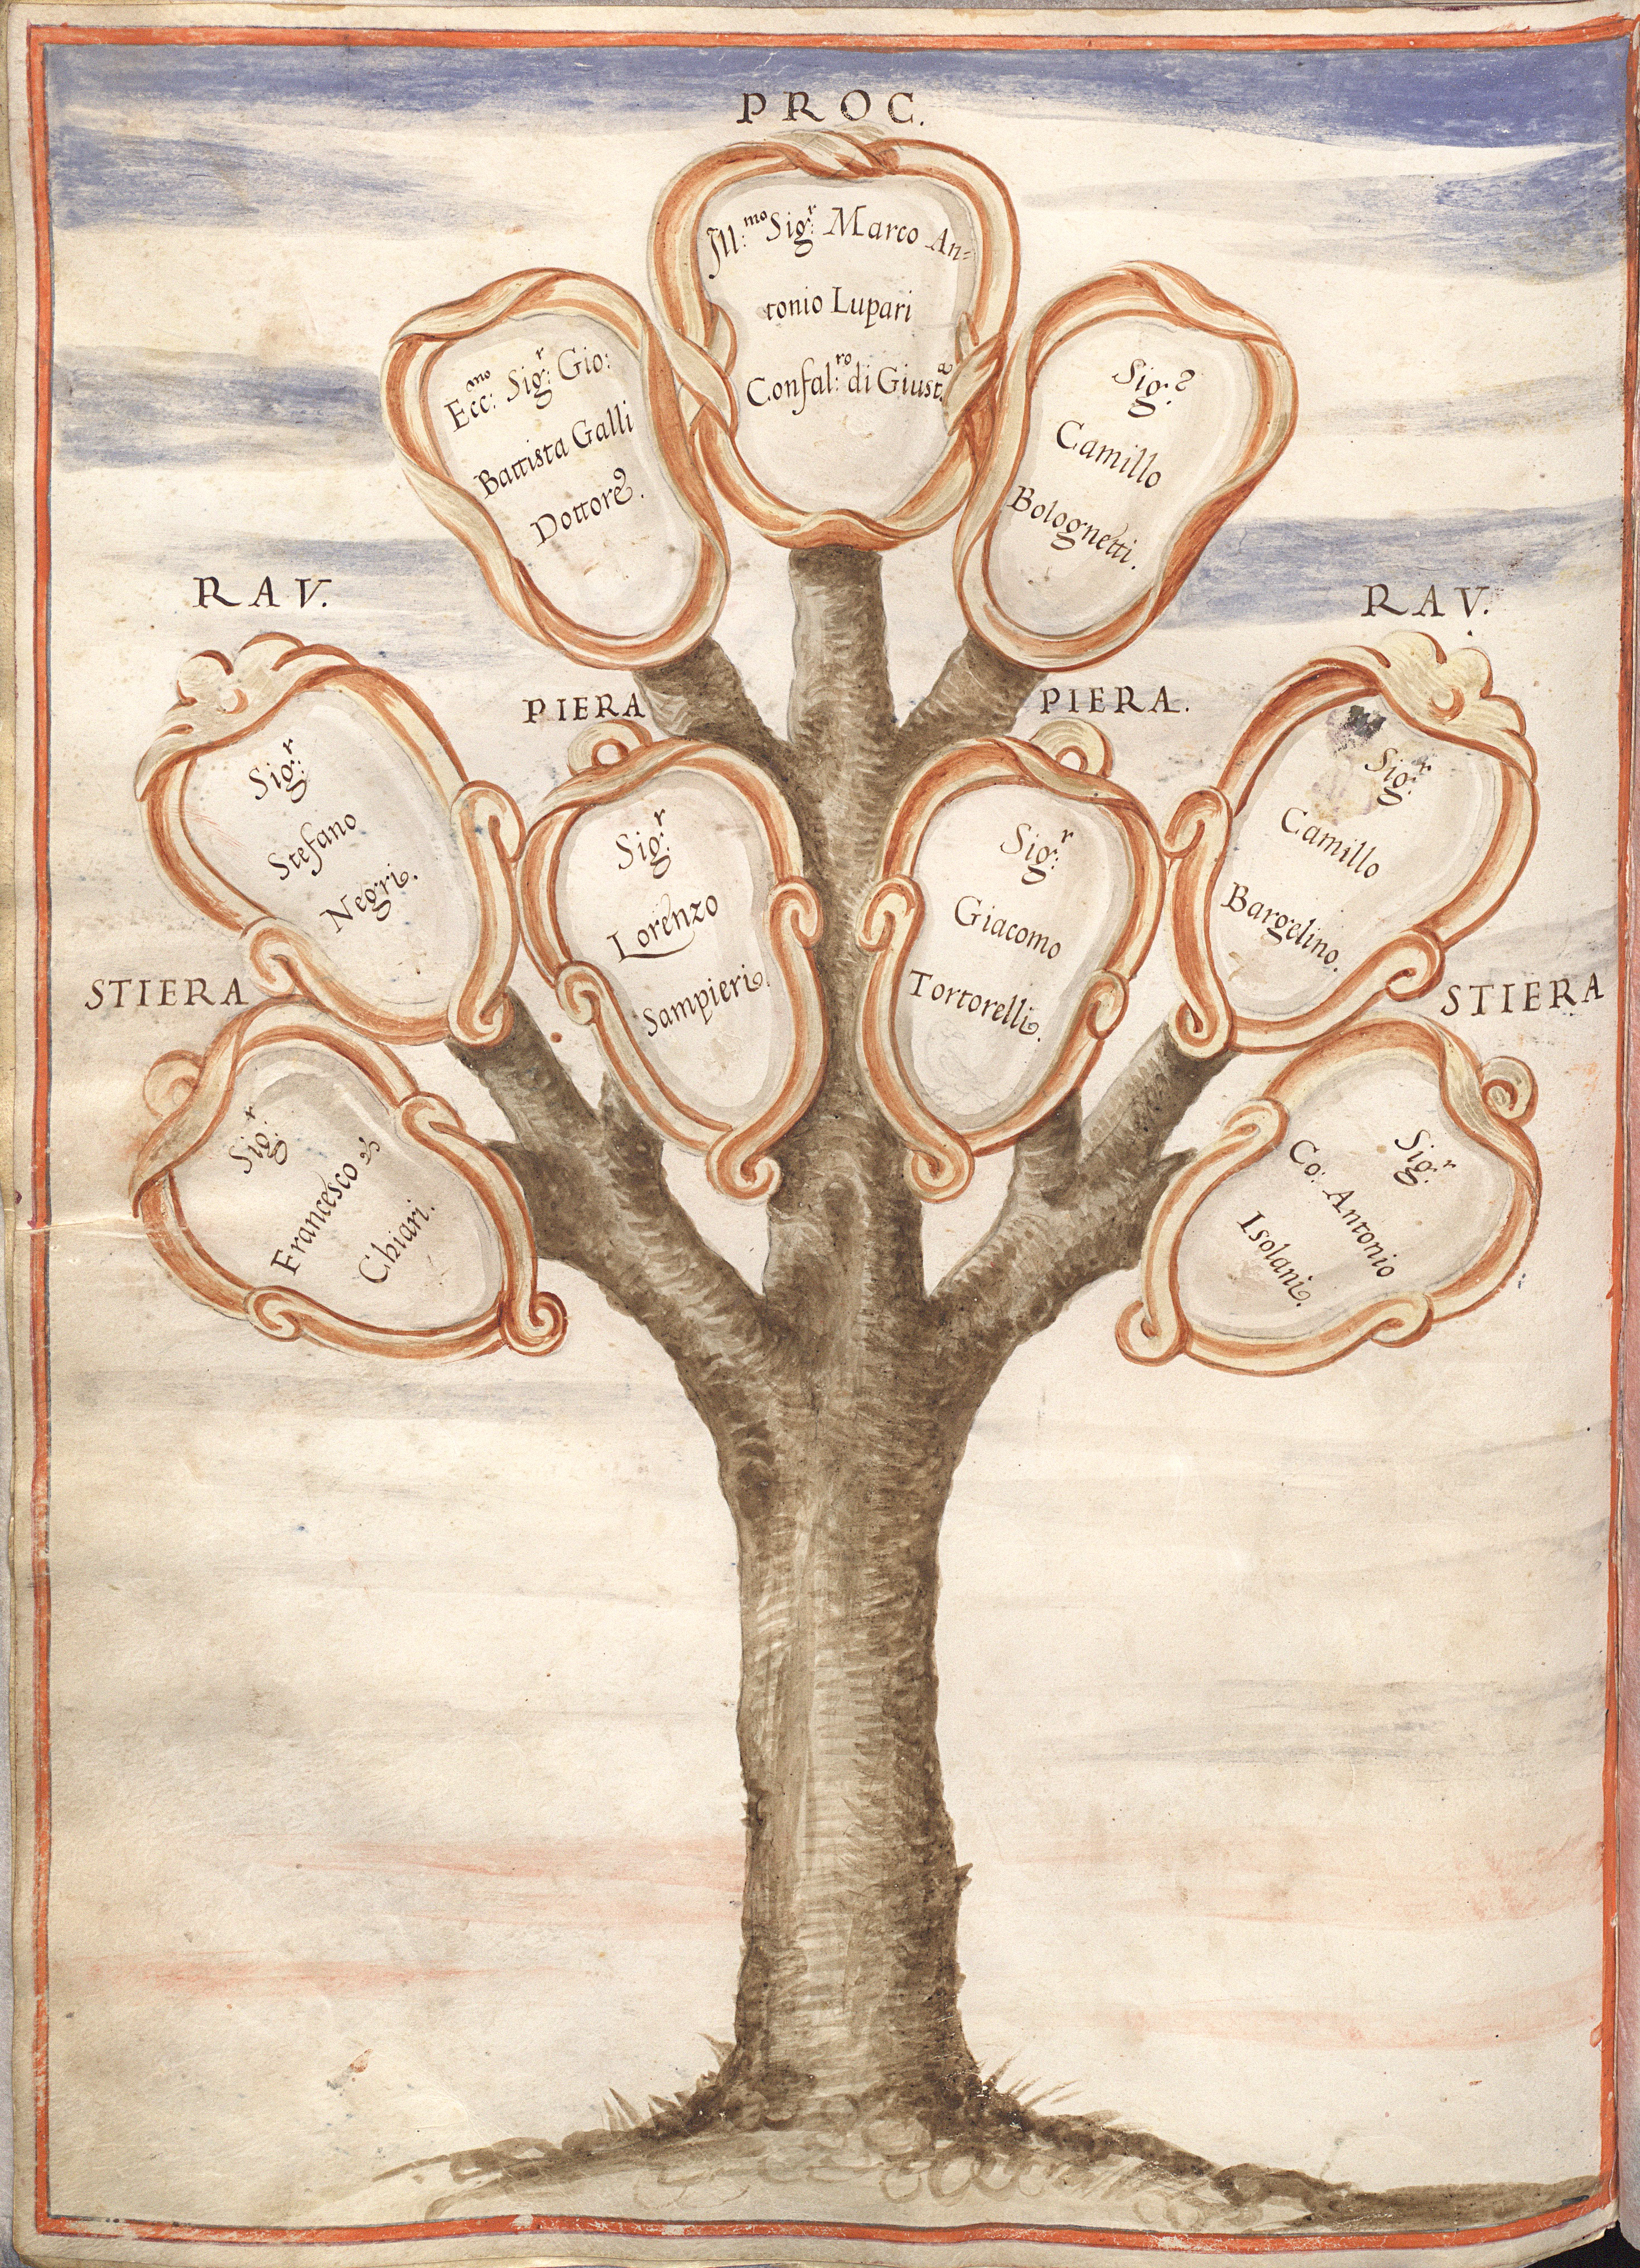 PROC.
Ill:mo Sig:r Marco An=
tonio Lupari
Confal:ro di Giust:a
Ecc:mo Sig:r Gio:
Battista Galli
Dottore.
Sig:r
Camillo
Bolognetti.
RAV.
Sig:r
Stefano
Negri.
PIERA
Sig:r
Lorenzo
Sampieri.
PIERA.
Sig:r
Giacomo
Tortorelli.
RAV.
Sig:r
Camillo
Bargelino.
STIERA
Sig:r
Francesco
Chiari.
STIERA
Sig:r
Co: Antonio
Isolani.